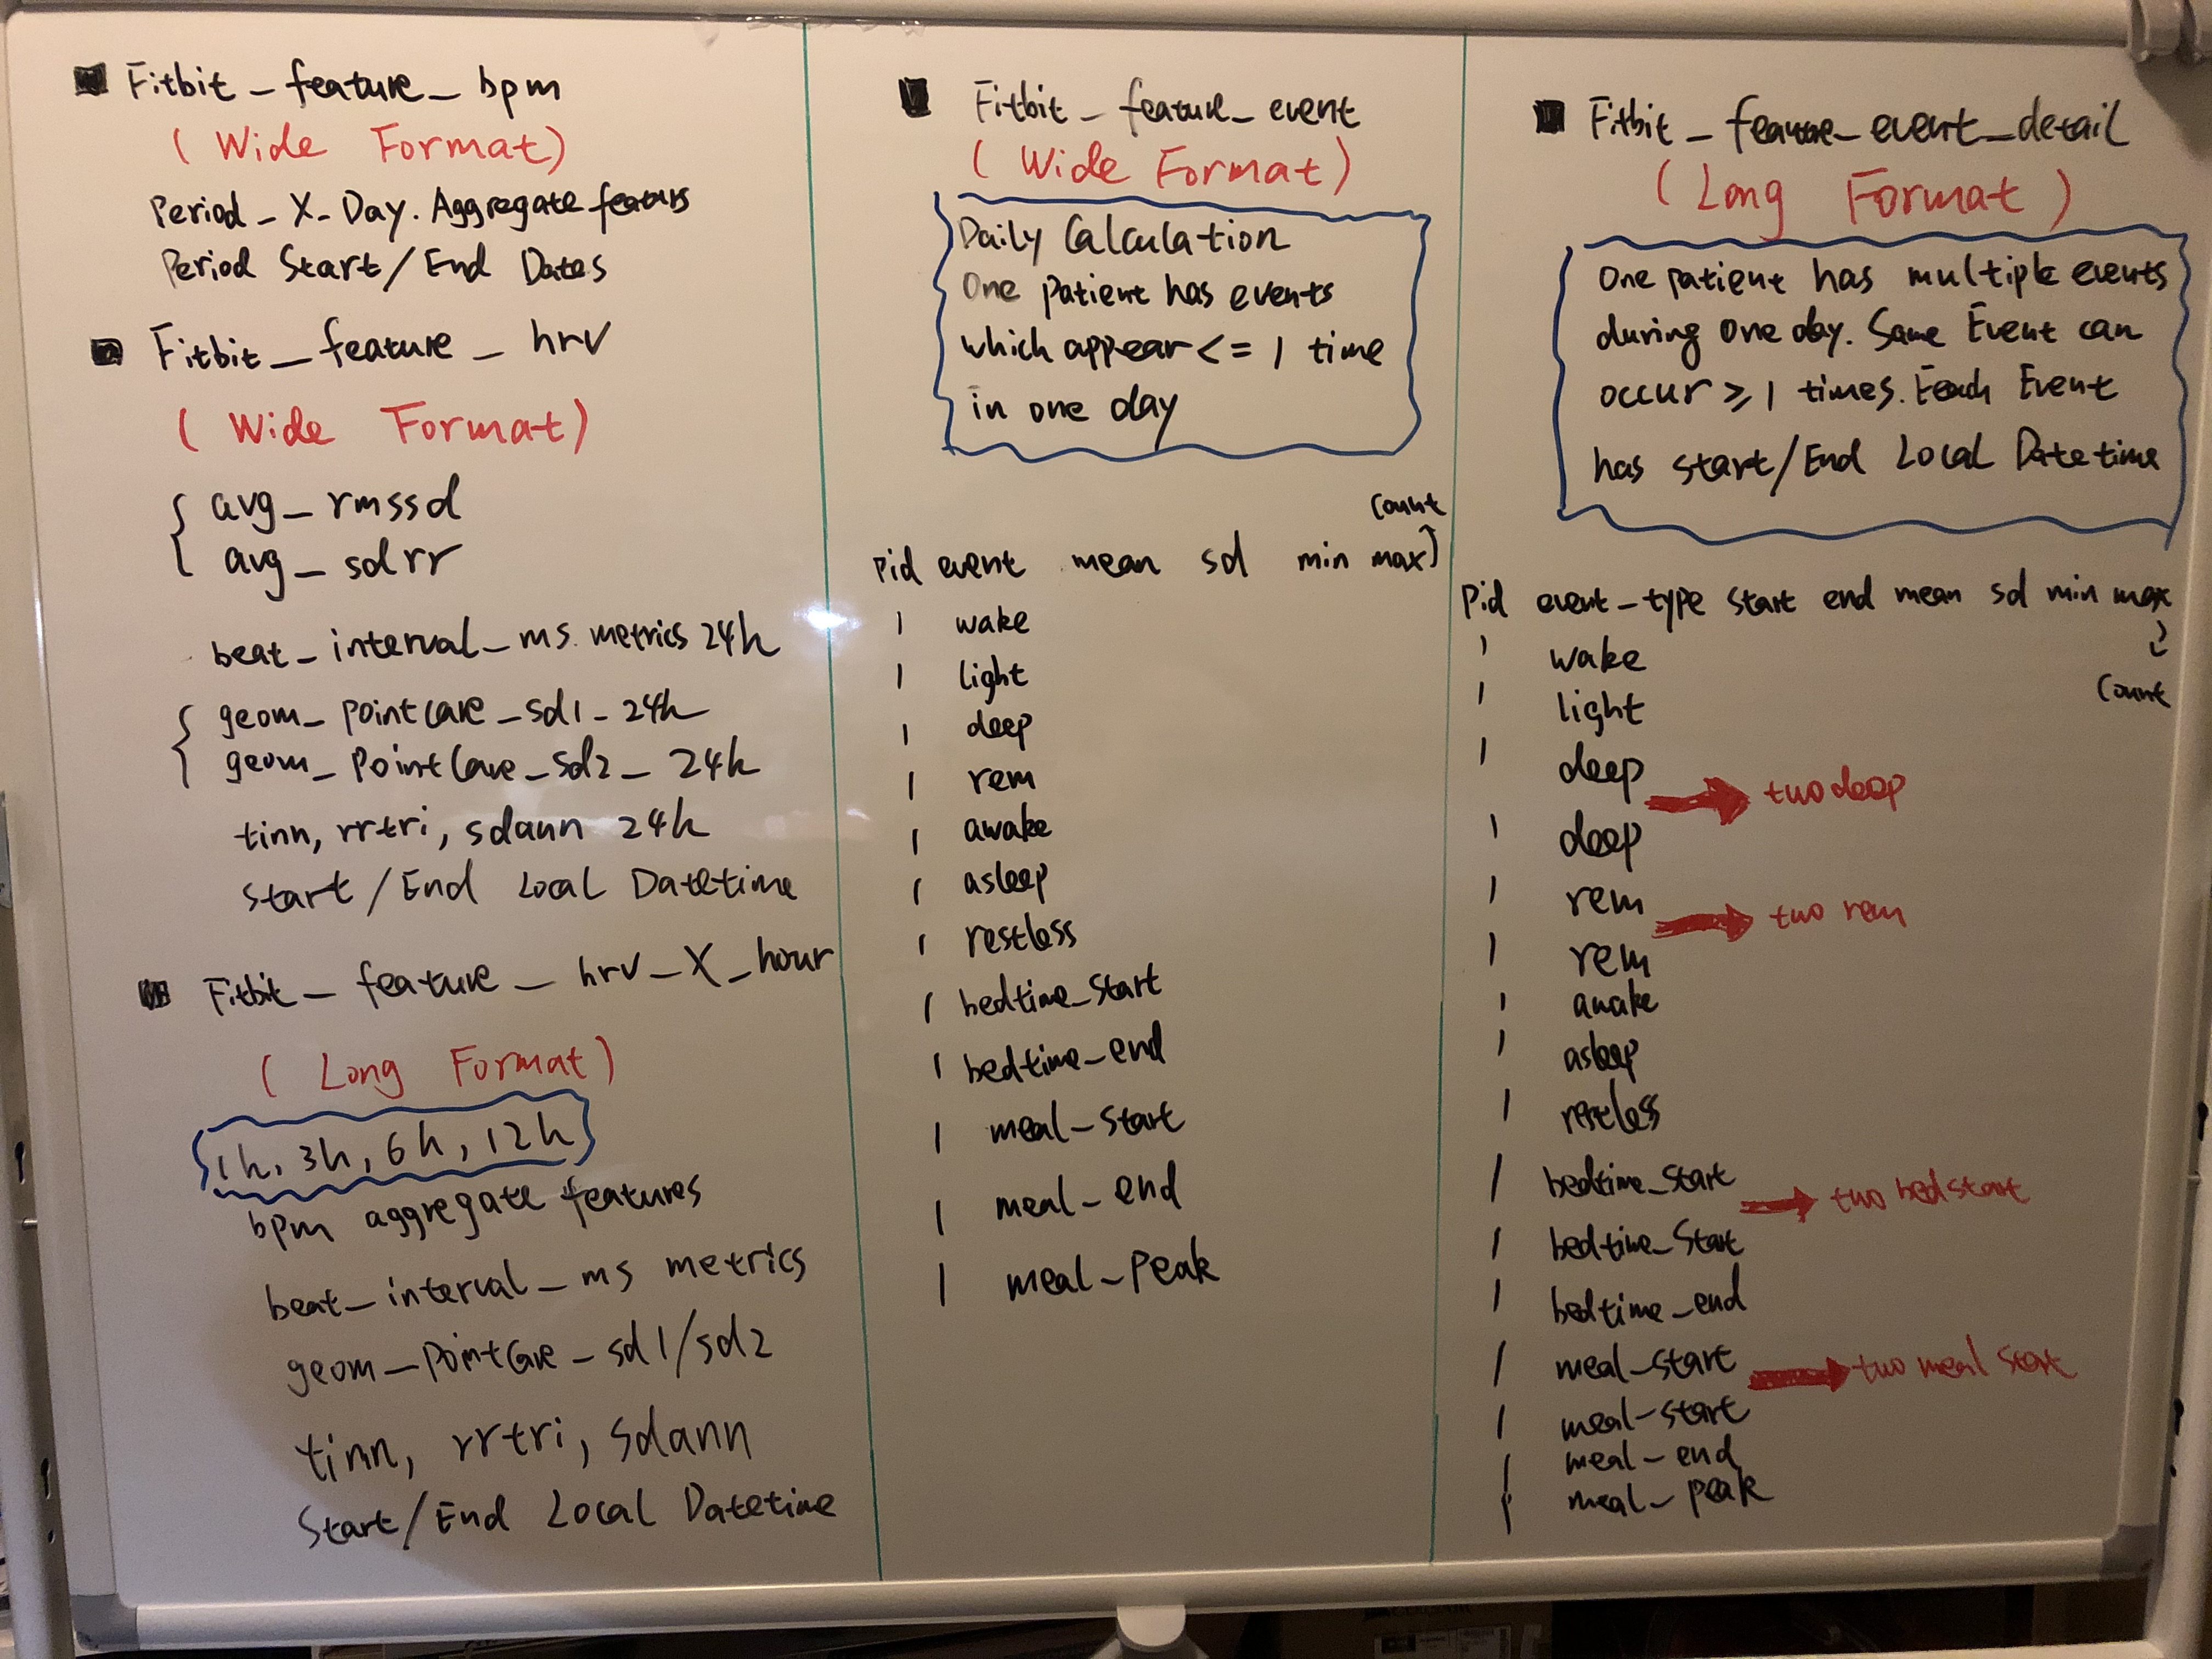 Fitbit_feature_bpm
(Wide Format)
Period_X_Day. Aggregate featurs
Period Start/End Dates
Fitbit_feature_hrv
(Wide Format)
avg_rmssd
avg_sdrr
beat_interval_ms. metrics 24h
geom_pointcare_sd1_24h
geom_pointcare_sd2_24h
tinn, rrtri, sdann 24h
Start/End Local Datetime
Fitbit_feature_hrv_X_hour
(Long Format)
1h, 3h, 6h, 12h
bpm aggregate features
beat_interval_ms metrics
geom_pointcare_sd1/sd2
tinn, rrtri, sdann
Start/End Local Datetime
Fitbit_feature_event
(Wide Format)
Daily Calculation
One patient has events
which appear <= 1 time
in one day
count
pid event mean sd min max
1 wake
1 light
1 deep
1 rem
1 awake
1 asleep
1 restless
1 bedtime_start
1 bedtime_end
1 meal_start
1 meal_end
1 meal_peak
Fitbit_feature_event_detail
(Long Format)
One patient has multiple events
during one day. Same Event can
occur ≥ 1 times. Each Event
has start/End Local Datetime
pid event_type start end mean sd min max
count
1 wake
1 light
1 deep → two deep
1 deep
1 rem → two rem
1 rem
1 awake
1 asleep
1 restless
1 bedtime_start → two bedstart
1 bedtime_start
1 bedtime_end
1 meal_start → two meal start
1 meal_start
1 meal_end
1 meal_peak